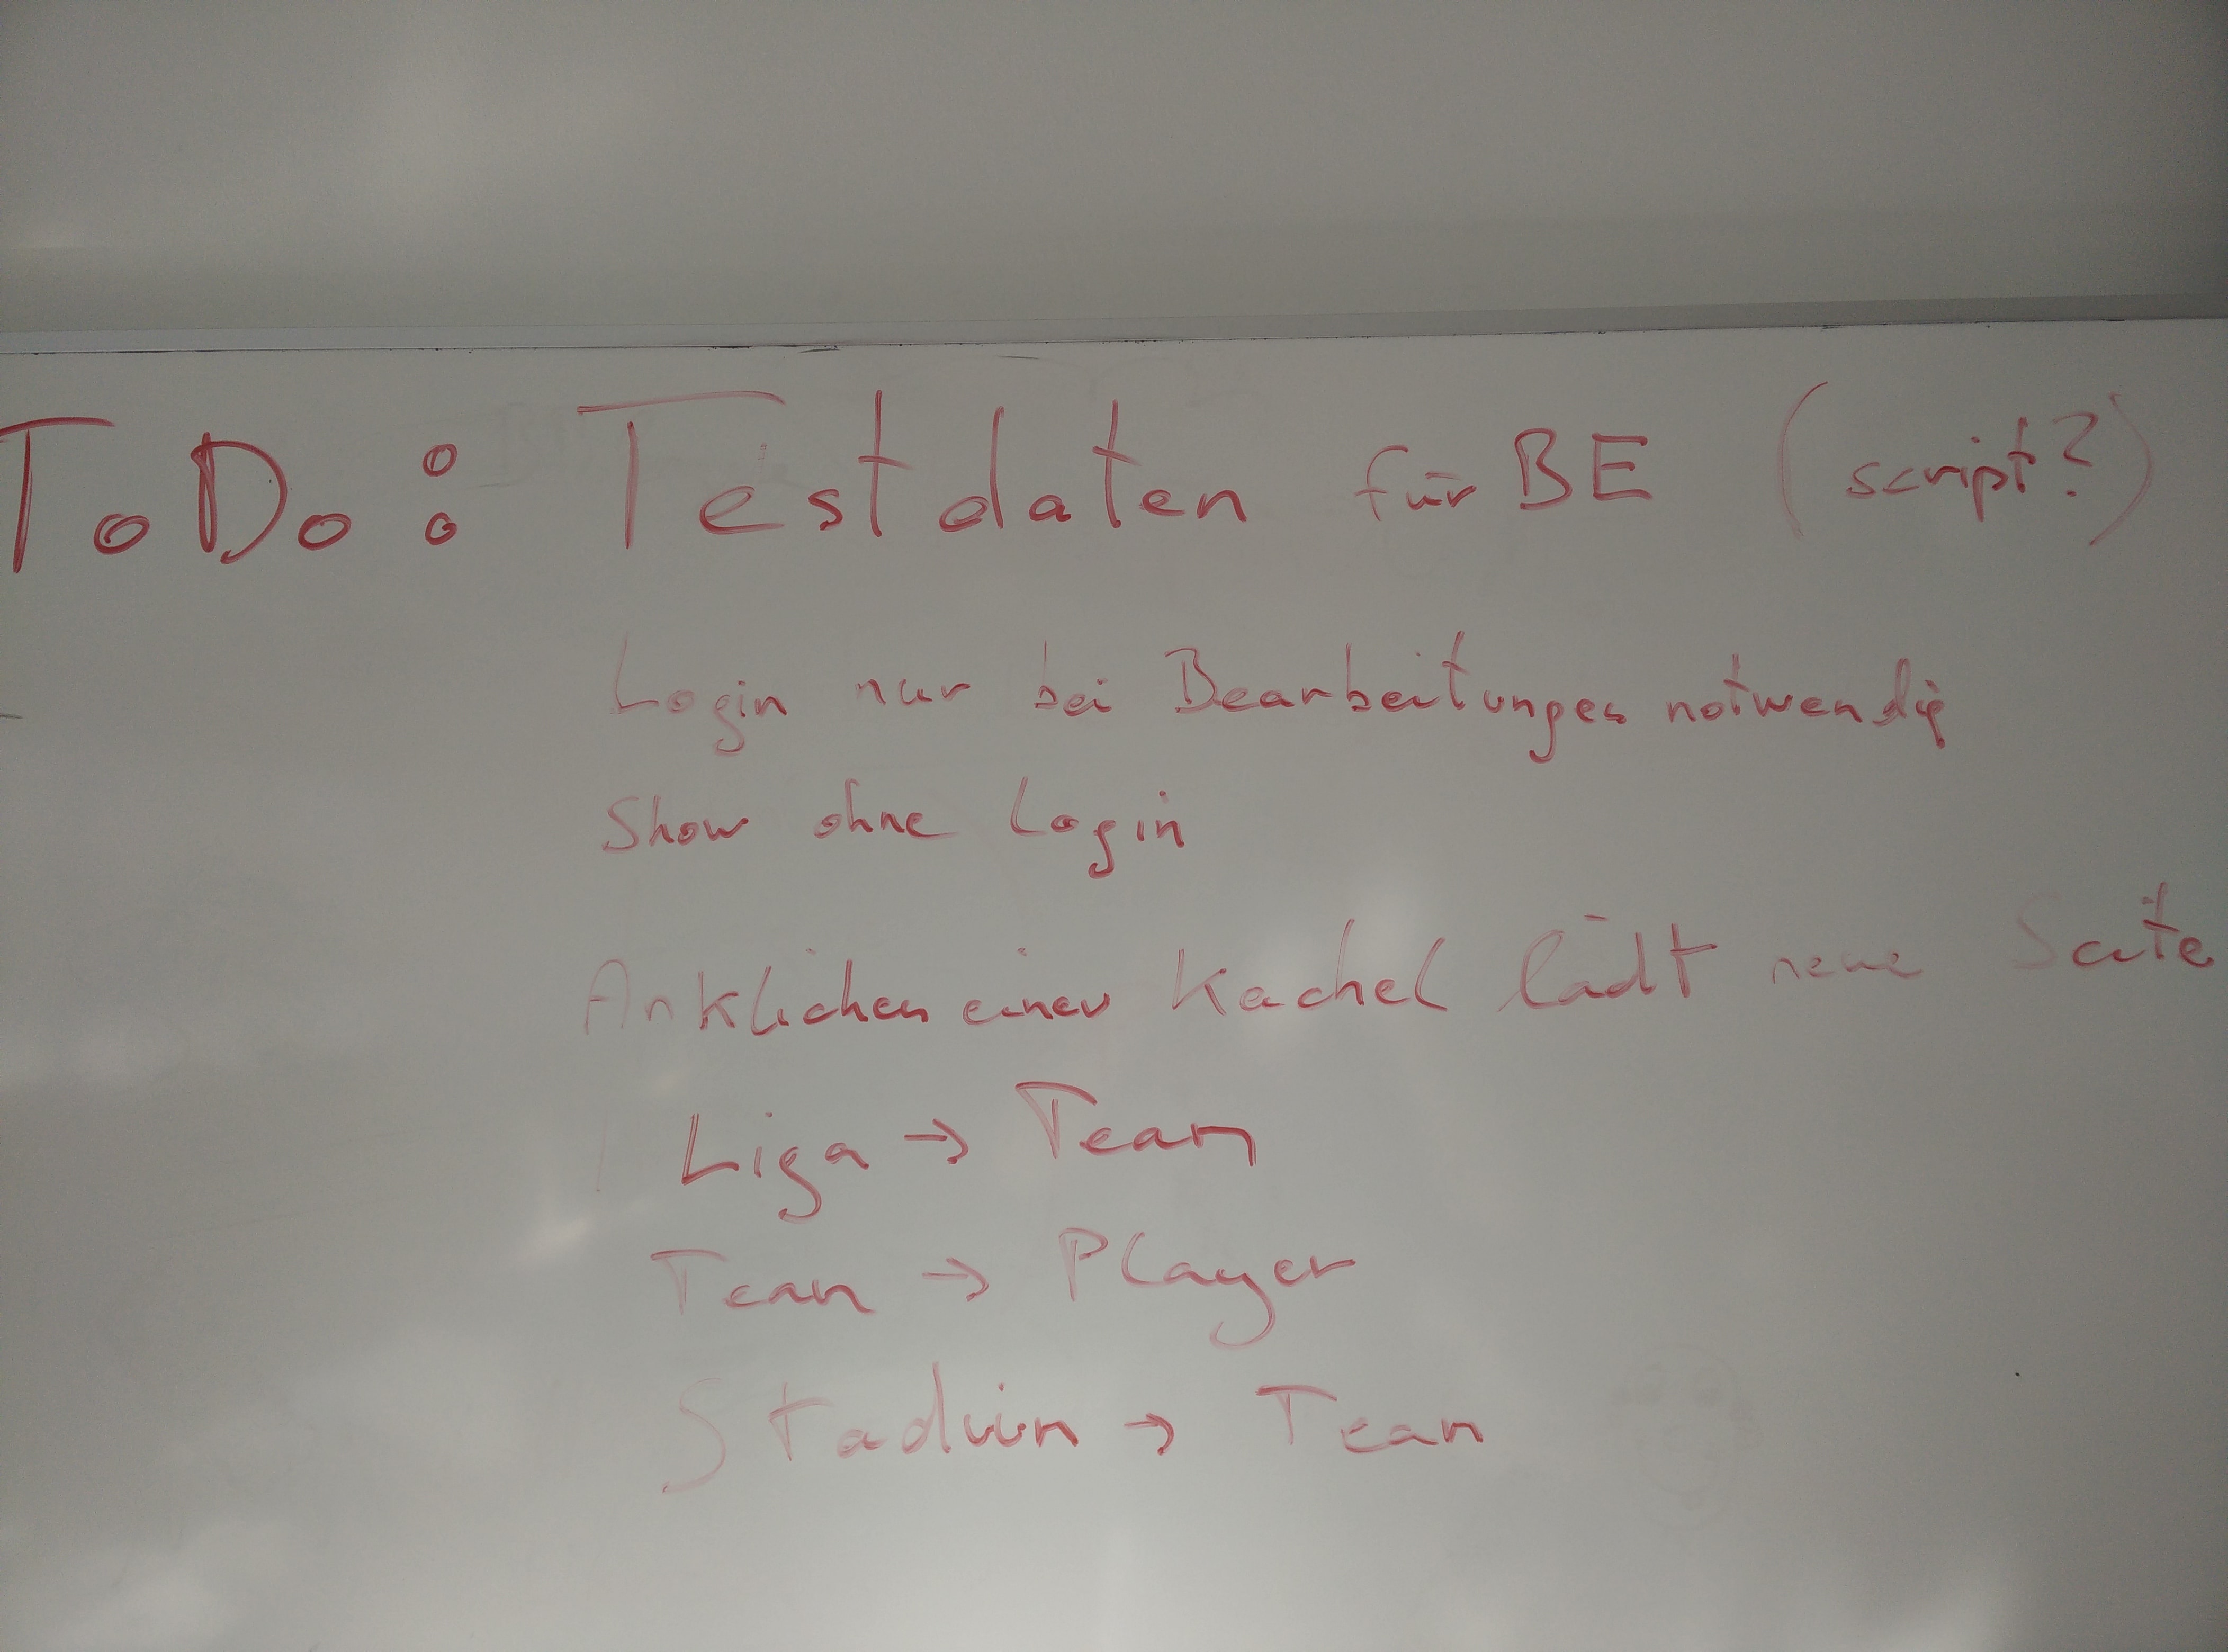 ToDo: Testdaten für BE (script?)
Login nur bei Bearbeitungen notwendig
Show ohne Login
Anklicken einer Kachel lädt neue Seite
Liga → Team
Team → Player
Stadium → Team